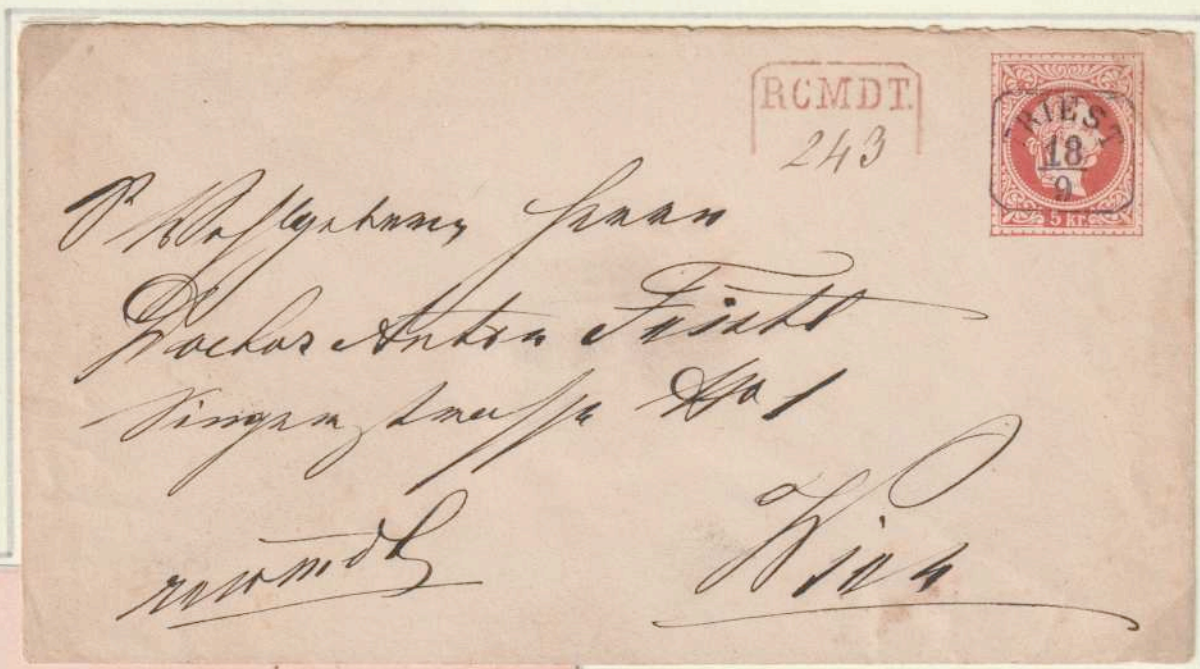 RCMDT.
243
TRIEST
18
9
5 kr.
Wohlgeboren Herrn
Doctor Anton
Singerstrasse No 1
Wien
recomdt